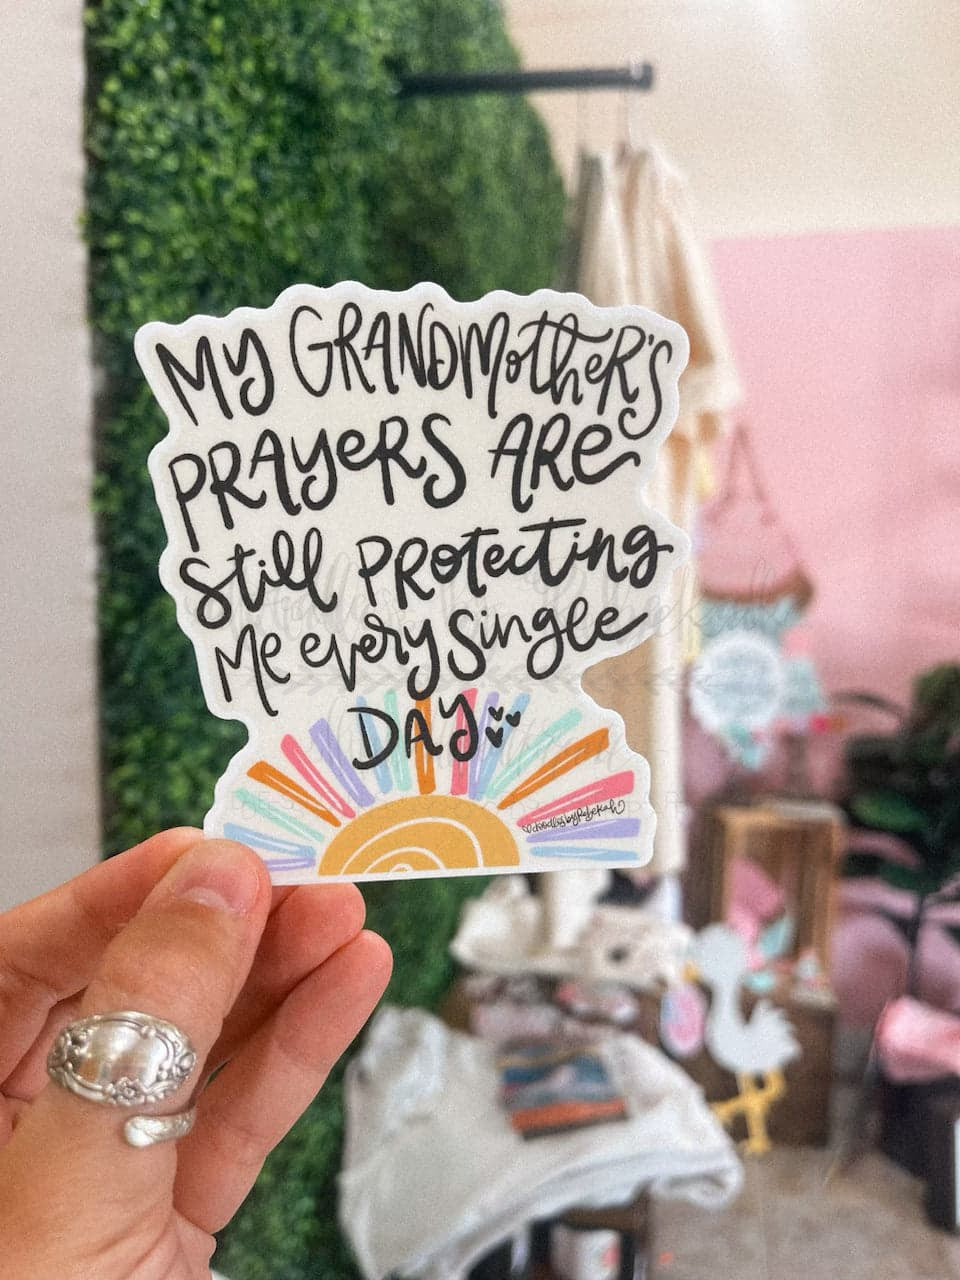 My GRANDMotheR's
PRAyeRS ARe
still PRotecting
Me every single
DAy
doodlesbyRebekah